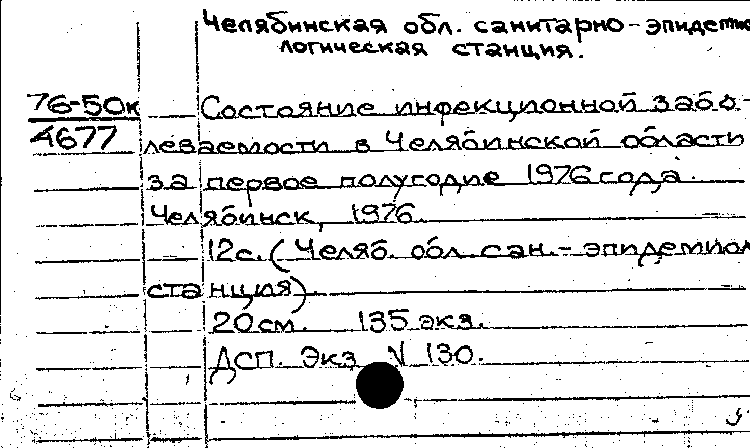 Челябинская обл. санитарно-эпидемио
логическая станция.
76-50к
4677
Состояние инфекционной забо-
леваемости в Челябинской области
за первое полугодие 1976 года.
Челябинск, 1976.
12с. (Челяб. обл. сан.-эпидемиол
станция).
20см. 135 экз.
Дсп. Экз N 130.